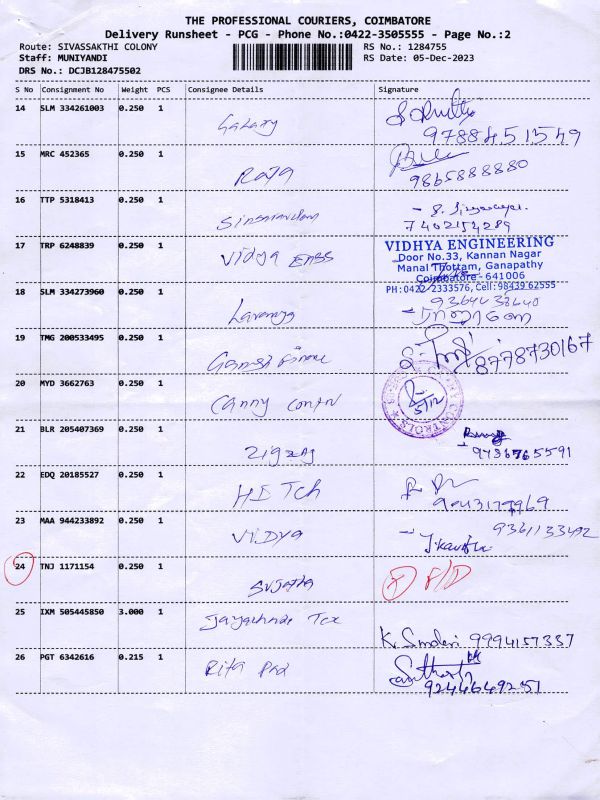 THE PROFESSIONAL COURIERS, COIMBATORE
Delivery Runsheet - PCG - Phone No.:0422-3505555 - Page No.:2
Route: SIVASSAKTHI COLONY RS No.: 1284755
Staff: MUNIYANDI RS Date: 05-Dec-2023
DRS No.: DCJB128475502
S No Consignment No Weight PCS Consignee Details Signature
14 SLM 334261003 0.250 1 Galaxy
9788451549
15 MRC 452365 0.250 1 Raja
9865888880
16 TTP 5318413 0.250 1
7402154289
17 TRP 6248839 0.250 1 Vidya Engg
VIDHYA ENGINEERING
Door No.33, Kannan Nagar
Manal Thottam, Ganapathy
Coimbatore - 641006
PH:0422-2333576, Cell: 98439 62555
18 SLM 334273960 0.250 1 Lavanya
19 TMG 200533495 0.250 1 Ganesh
8778730167
20 MYD 3662763 0.250 1 Canny
5/12
CONTROLS
21 BLR 205407369 0.250 1 Zigzag
9736765591
22 EDQ 20185527 0.250 1 HI Tch
23 MAA 944233892 0.250 1 Vidya
9361133492
24 TNJ 1171154 0.250 1 Sujatha
25 IXM 505445850 3.000 1 Tex
9994157337
26 PGT 6342616 0.215 1 Rita
9244649251